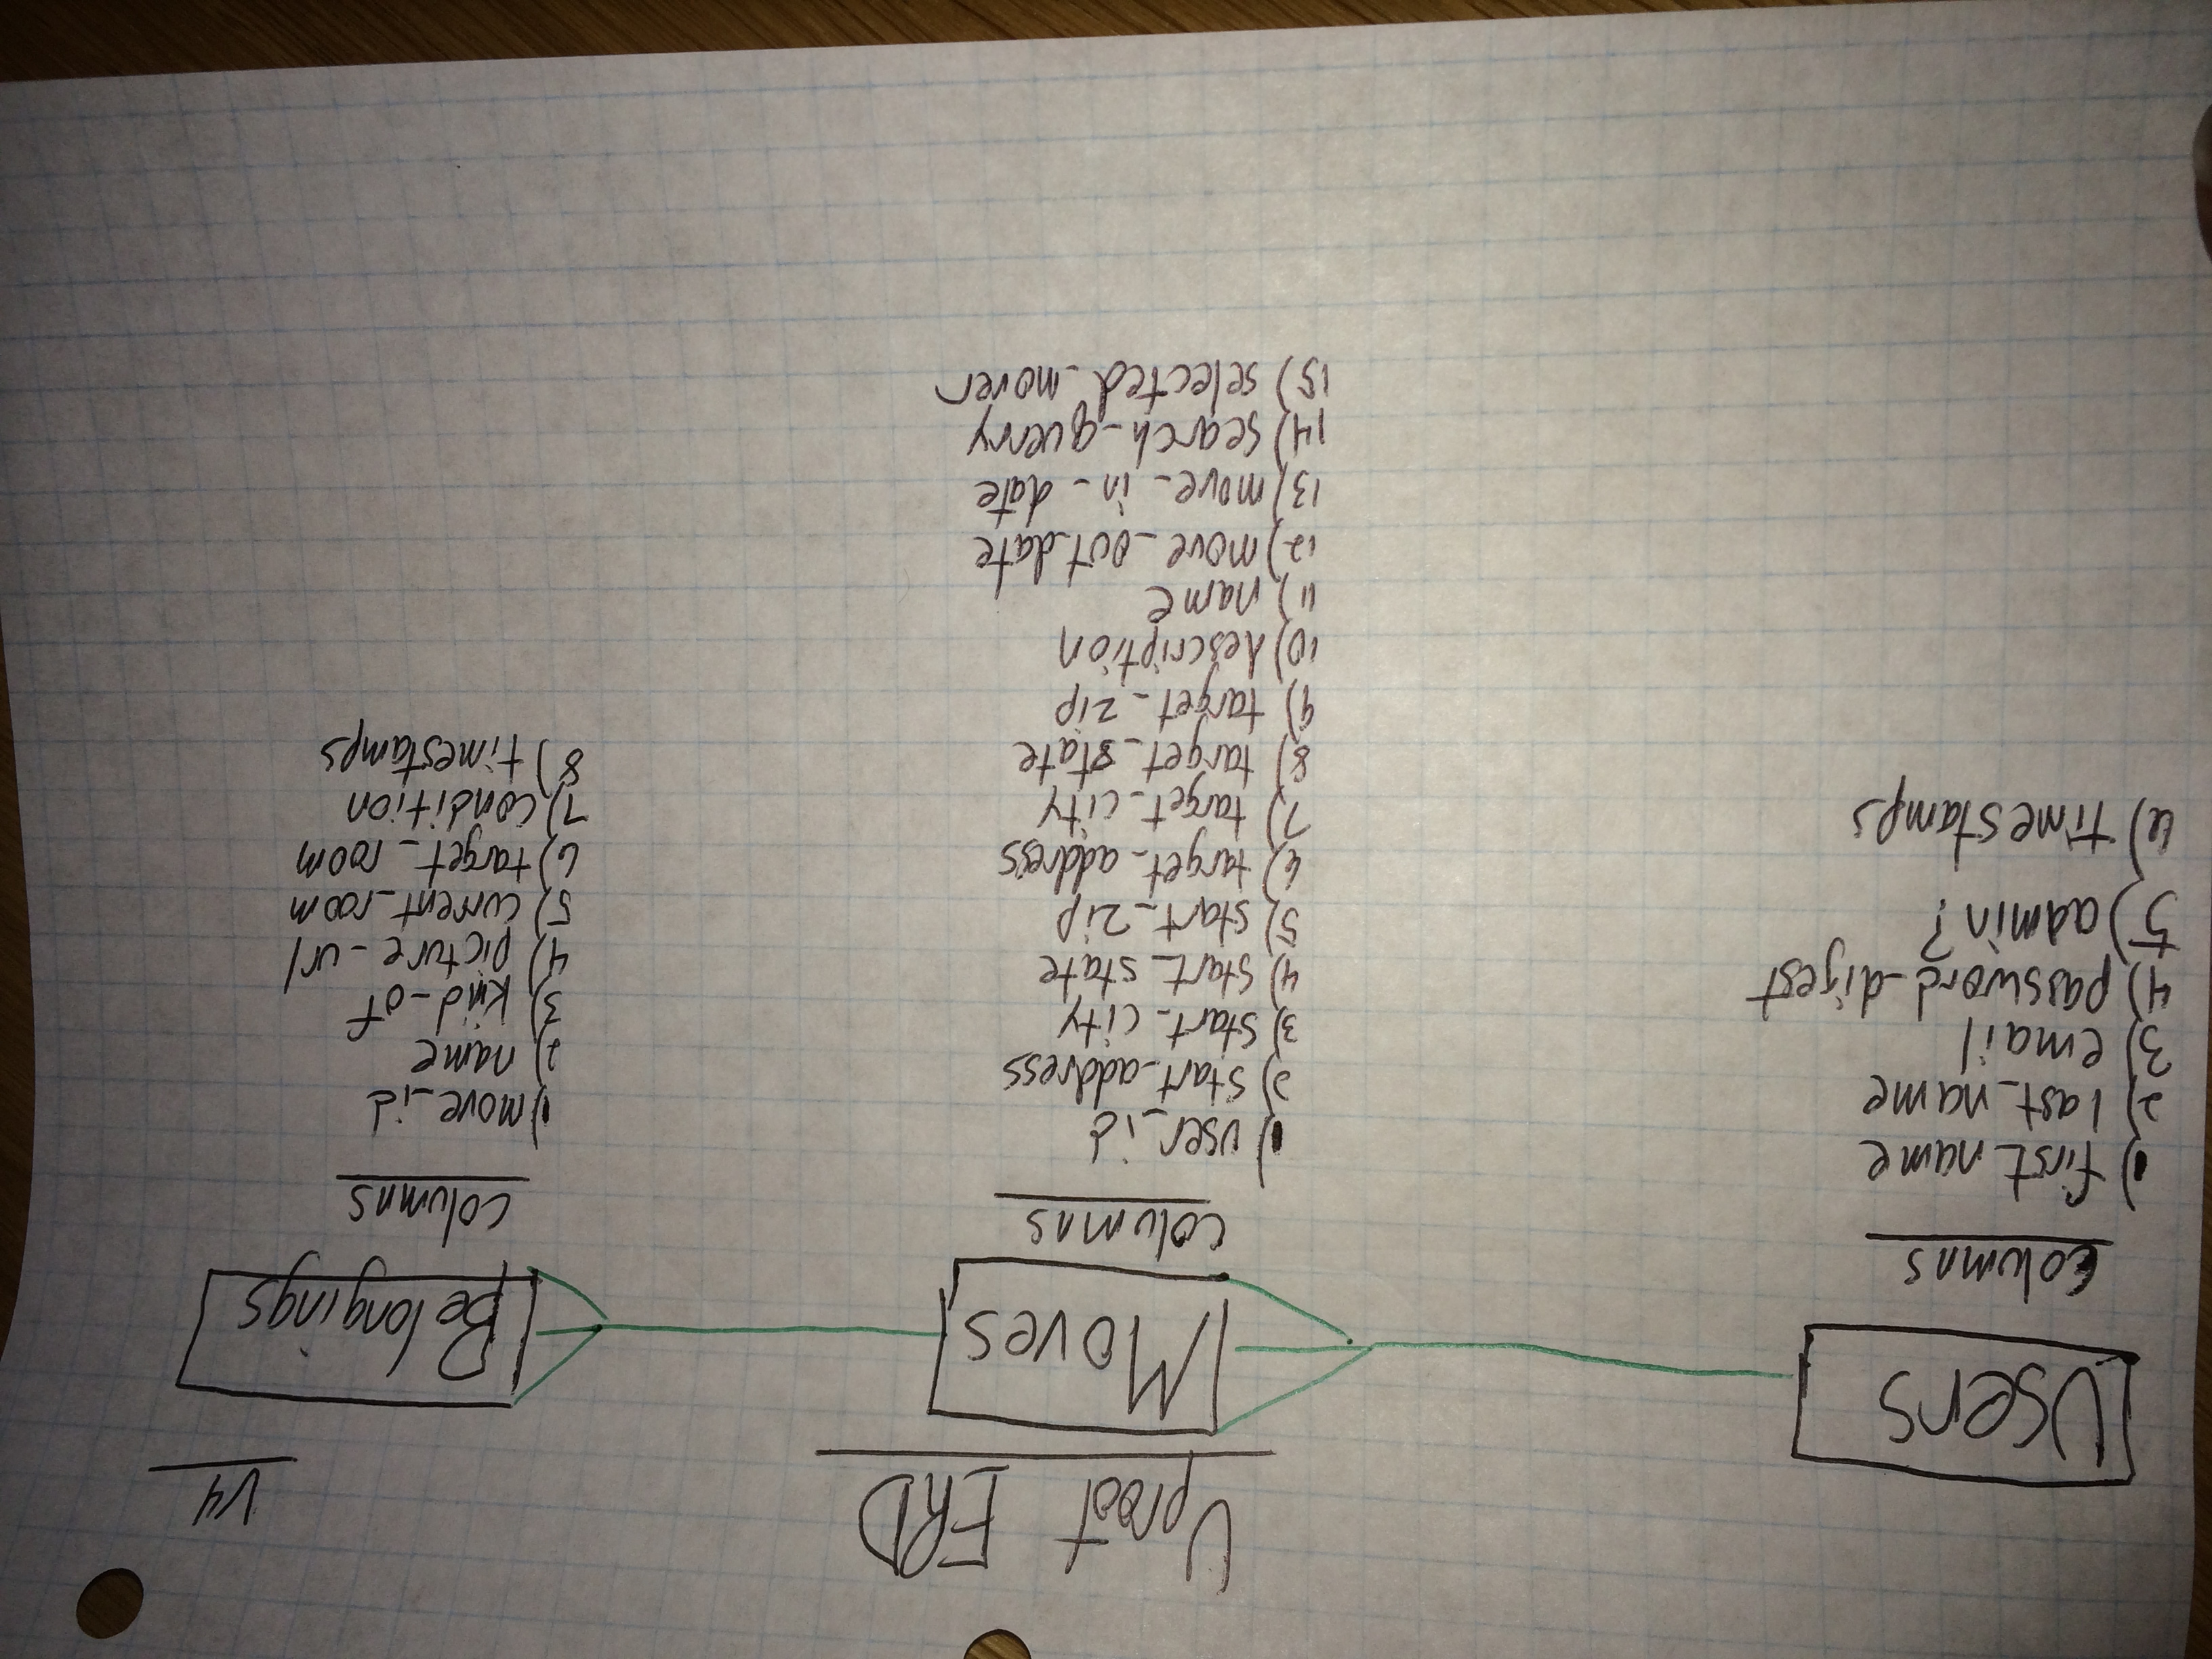 Uproot ERD
V4
Users
Columns
1) first_name
2) last_name
3) email
4) password_digest
5) admin?
6) timestamps
Moves
Columns
1) user_id
2) start_address
3) start_city
4) start_state
5) start_zip
6) target_address
7) target_city
8) target_state
9) target_zip
10) description
11) name
12) move_out_date
13) move_in_date
14) search_querry
15) selected_mover
Belongings
Columns
1) move_id
2) name
3) kind_of
4) picture_url
5) current_room
6) target_room
7) condition
8) timestamps